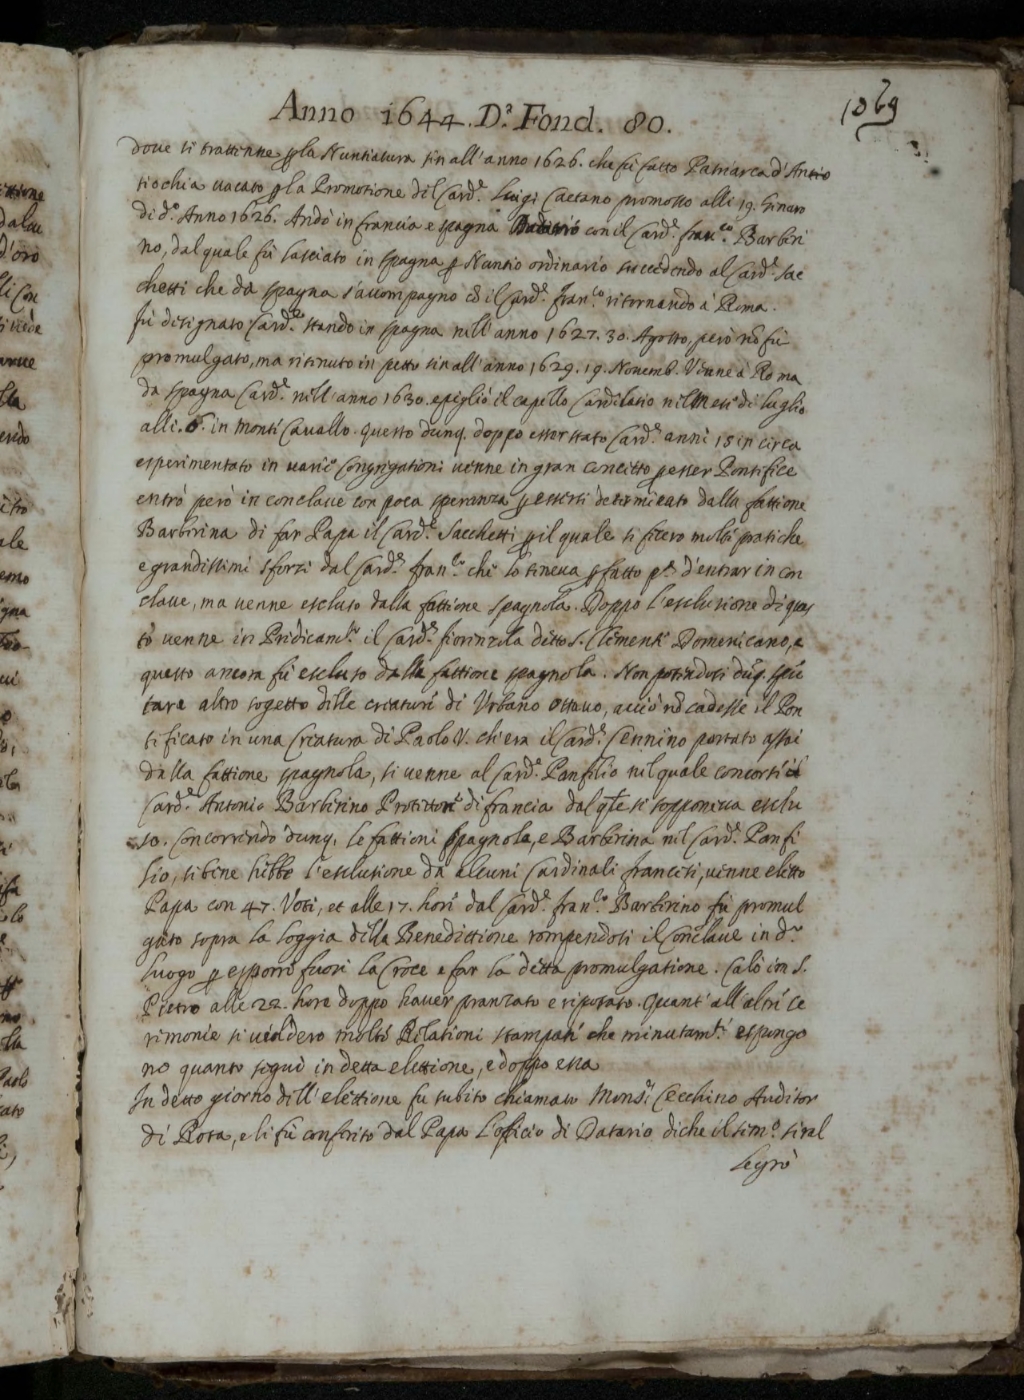 1069
Anno 1644. D.ª Fond. 80.
doue si trattenne p la Nuntiatura sin all' anno 1626. che fù fatto Patriarca d' Antio
tiochia uacato p la Promotione del Card.e Luigi Caetano promosso alli 19. Genaro
di d.o Anno 1626. Andò in francia e spagna con il Card.e fran.co Barberi
no, dal quale fù lasciato in spagna p Nuntio ordinario succedendo al Card.e Sac
chetti che da spagna s'accompagno cõ il Card.e fran.co ritornando à Roma.
fù designato Card.e stando in spagna nell' anno 1627. 30. Agosto, però nõ fù
promulgato, ma ritenuto in petto sin all' anno 1629. 19. Nouemb. Venne à Roma
da spagna Card.e nell' anno 1630. e pigliò il capello Cardilatio nel Mese di luglio
alli. 6. in Monte Cauallo. questo dunq. doppo esser stato Card.e anni 15 in circa
esperimentato in uarie Congregationi uenne in gran concetto p esser Pontefice
entrò però in conclaue con poca speranza p essersi determinato dalla fattione
Barberina di far Papa il Card.e Sacchetti p il quale si fecero molte pratiche
e grandissimi sforzi dal Card.e fran.co che lo teneua p fatto p.a d'entrar in con
claue, ma uenne escluso dalla fattione spagnola. Doppo l'esclusione di ques
to uenne in Predicam.to il Card.e fiorenzola detto S. Clemente Domenicano, e
questo ancora fù escluso dalla fattione spagnola. Non potendosi dũq. spũ
tare altro sogetto delle creature di Vrbano Ottauo, acciò nõ cadesse il Pon
tificato in una Creatura di Paolo V. ch'era il Card.e Cennino portato assai
dalla fattione spagnola, si uenne al Card.e Panfilio nel quale concorse il
Card.e Antonio Barberino Protettore di francia dal qle si sopponeua esclu
so. Concorrendo dunq. le fattioni spagnola, e Barberina nel Card.e Panfi
lio, sibene hebbe l'esclusione da alcuni Cardinali francesi, uenne eletto
Papa con 47. Voti, et alle 17. hore dal Card.e fran.co Barberino fù promul
gato sopra la loggia della Benedittione rompendosi il Conclaue in d.o
luogo p esporre fuori la Croce e far la detta promulgatione. Calò in S.
Pietro alle 22. hore doppo hauer pranzato e riposato. Quant' all' altre ce
rimonie si uiddero molte Relationi stampate che minutam.te espongo
no quanto seguì in detta elettione, e doppo essa
In detto giorno dell' elettione fu subito chiamato Mons.r Cecchino Auditor
di Rota, e li fù conferito dal Papa l'officio di Datario, di che il sim.e si ral
legrò